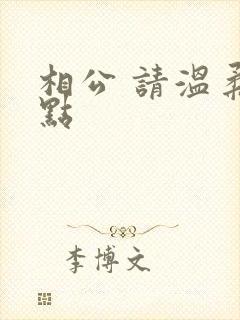 相公 請溫柔
點
李博文